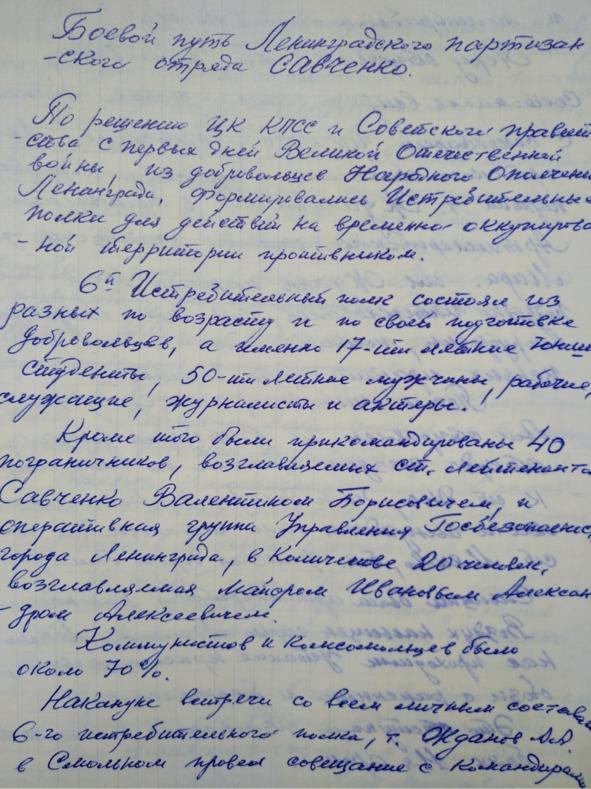 Боевой путь Ленинградского партизан
-ского отряда САВЧЕНКО.
По решению ЦК КПСС и Советского правит
-ства с первых дней Великой Отечественной
войны, из добровольцев Народного Ополчени
Ленинграда, формировались Истребительные
полки для действий на временно оккупирова
-ной территории противником.
6й Истребительный полк состоял из
разных по возрасту и по своей подготовке
добровольцев, а именно 17-ти летние юнош
студенты, 50-ти летние мужчины, рабочие,
служащие, журналисты и актеры.
Кроме того были прикомандированы 40
пограничников, возглавляемых ст. лейтенанто
Савченко Валентином Борисовичем, и
оперативная группа Управления Госбезопаснос
города Ленинграда, в количестве 20 человек,
возглавляемая майором Ивановым Алексан
-дром Алексеевичем.
Коммунистов и комсомольцев было
около 70%.
Накануне встречи со всем личным составом
6-го истребительного полка, т. Жданов А.А.
в Смольном провел совещание с командирами